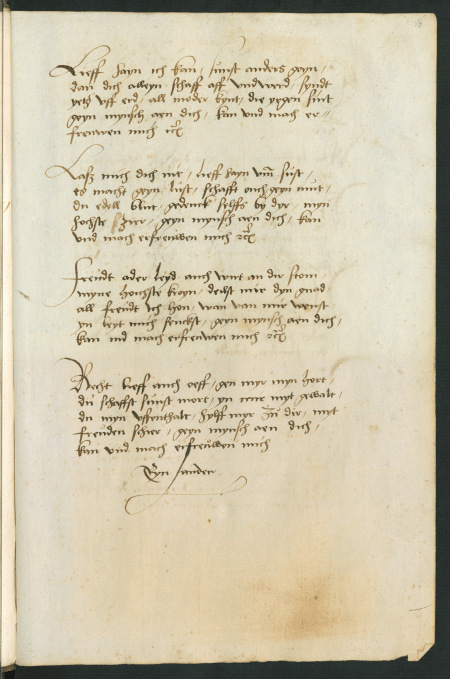 Lieff hayn ich kan / sunst anders geyn /
dan dich alleyn / schaff aff und werd / syndt
yetz uff erd / all moder kynt / die gegen sint
geyn mynsch aen dich / kan und mach er=
freuwen mich
Lasz mich dich nit / lieff hayn umb sust /
es macht geyn lust / schafft ouch geyn mut /
du edell blut / gedenck selffs by dyr / myn
hochste zier / geyn mynsch aen dich / kan
und mach erfreuwen mich
Freudt ader leyd auch wirt an dir ston
myne hochste kroyn / deilst mir dyn gnad
all freudt ich hon / wan van mir wenst
yn leyt mich senckst / geyn mynsch aen dich /
kan und mach erfreuwen mich
Recht lieff auch oeff / gen myr myn hort /
du schaffst sunst mort / yn myr myt gewalt /
du myn uffenthalt / hylff myr zu dir / myt
freuden schier / geyn mynsch aen dich /
kan und mach erfreuwen mich
Eyn ander